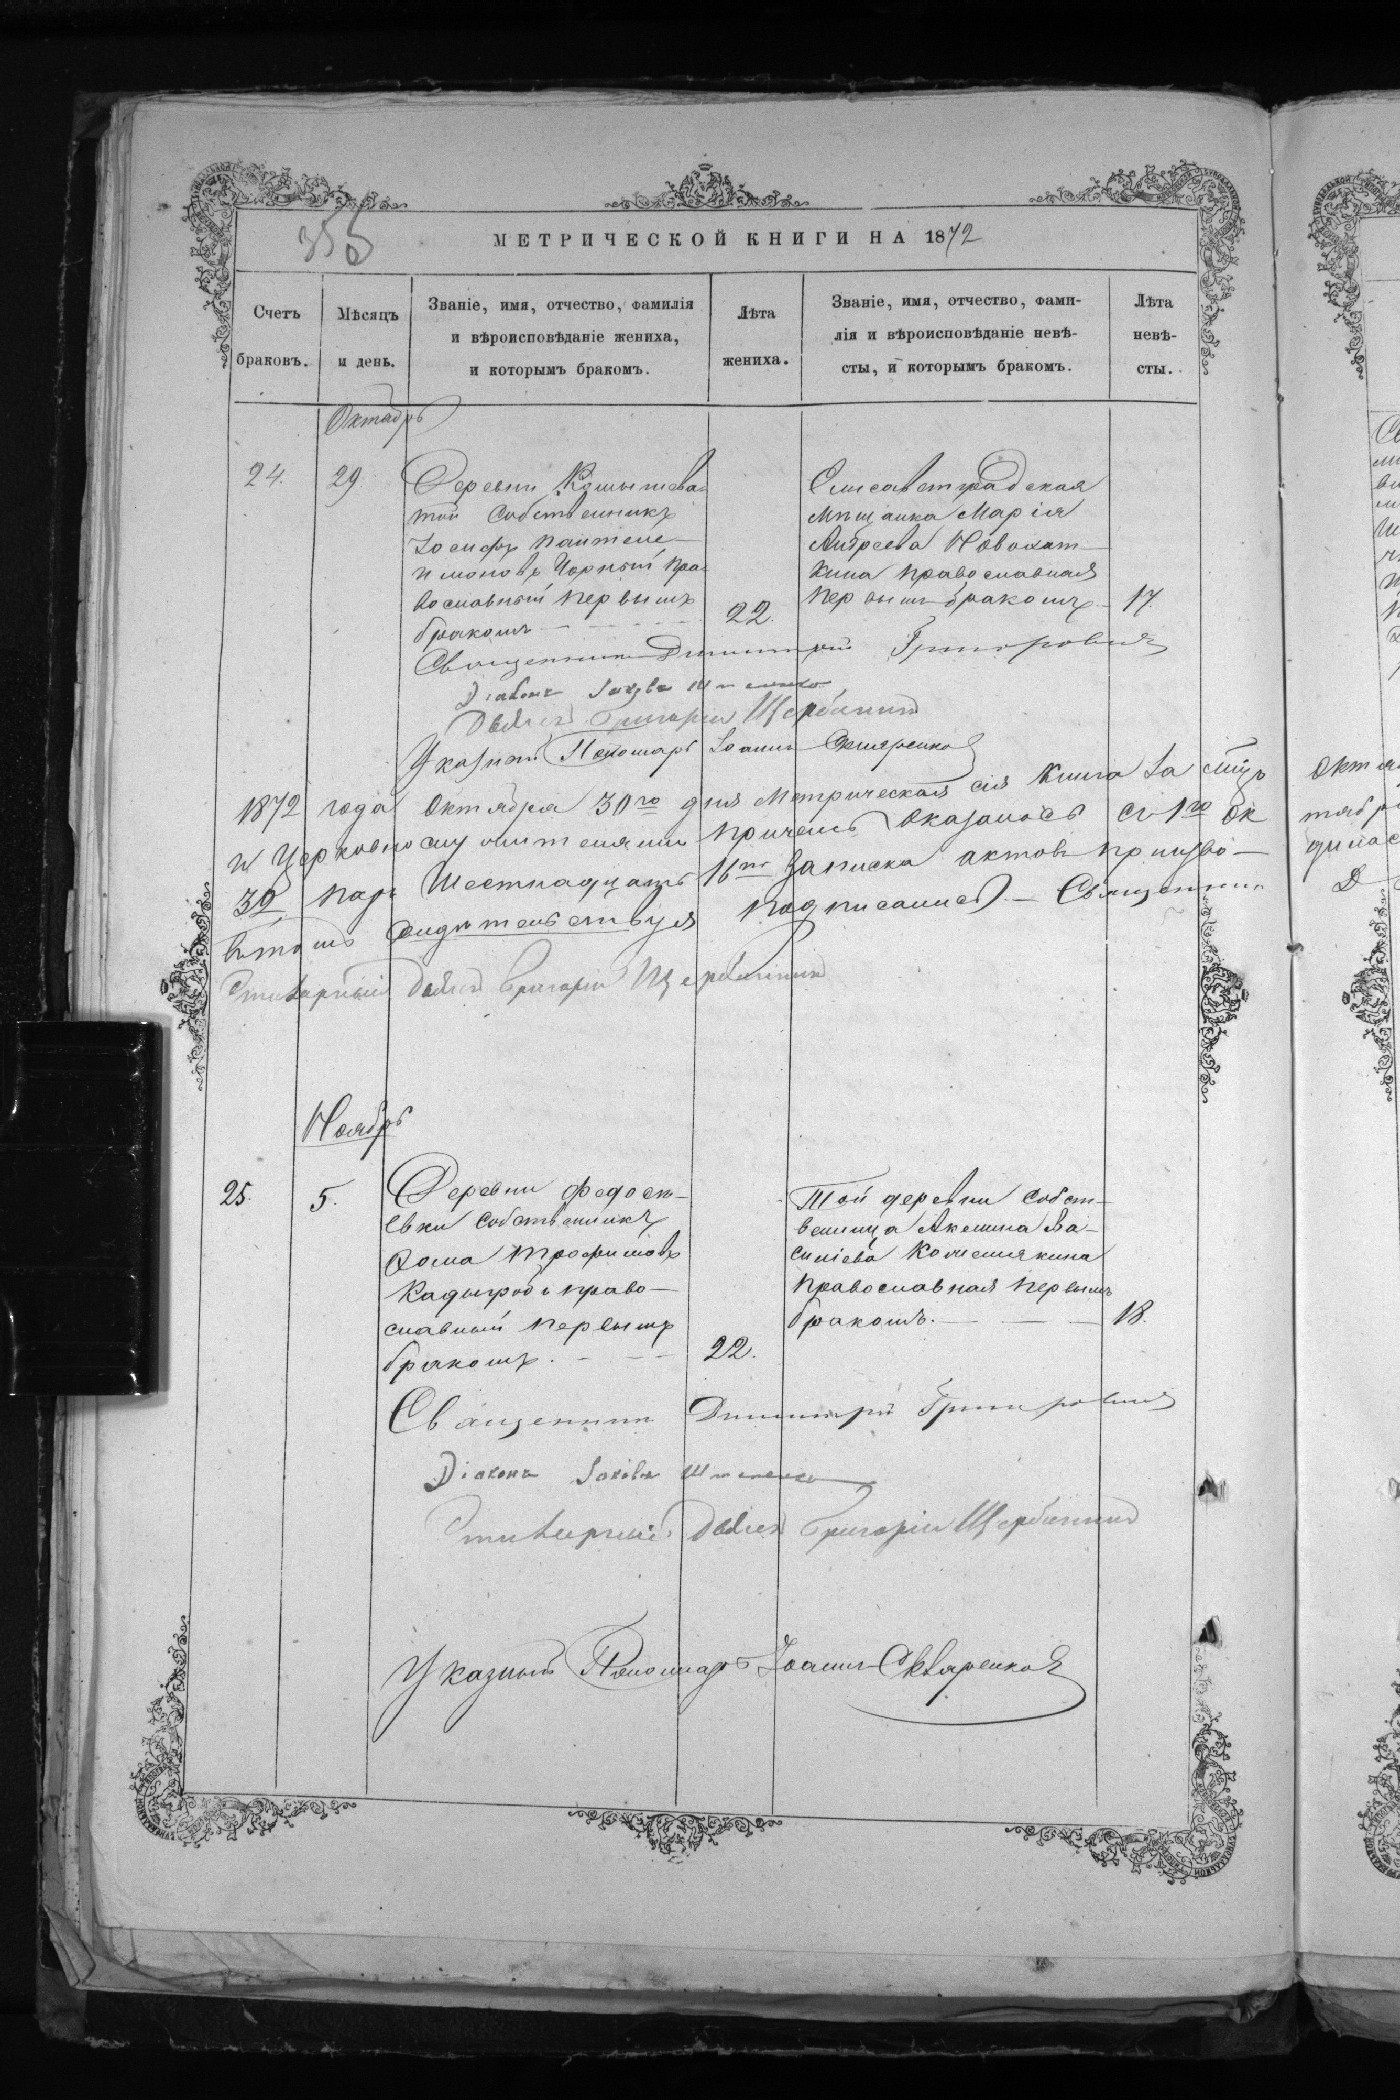 355
МЕТРИЧЕСКОЙ КНИГИ НА 1872
Счетъ браковъ.
Мѣсяцъ и день.
Званіе, имя, отчество, фамилія
и вѣроисповѣданіе жениха,
и которымъ бракомъ.
Лѣта жениха.
Званіе, имя, отчество, фами-
лія и вѣроисповѣданіе невѣ-
сты, и которымъ бракомъ.
Лѣта невѣ-
сты.
Октябрь
24.
29
Деревни Камышева-
той собственникъ
Іосифъ Пантеле-
имоновъ Чорный пра-
вославный первымъ
бракомъ
22.
Елисаветградская
мѣщанка Марія
Андреева Новохат-
кина православная
первымъ бракомъ
17.
Священникъ Димитрій Григоровичъ
Діаконъ Іаковъ
Дьячекъ Григорій Щербинин
Указный Пономарь Іоаннъ Скляренков
1872 года Октября 30го дня Метрическая сія книга
и Церковнослужителями причемъ оказалось съ 1го Ок
30 пар Шестнадцать 16ть записка актовъ произво-
въ томъ свидѣтельствуя подписались. Священник
Стихарный Дьячек Григорій Щербинин
Ноябрь
25.
5.
Деревни Федосе-
евки собственникъ
Фома Трофимовъ
Кадыгробъ право-
славный первымъ
бракомъ.
22.
Той деревни собст-
венница Акелина Ва-
силіева Колеснякина
православная первымъ
бракомъ.
18.
Священникъ Димитрій Григоровичъ
Діаконъ Іаковъ
Стихарный Дьячек Григорій Щербинин
Указный Пономарь Іоаннъ Скляренков